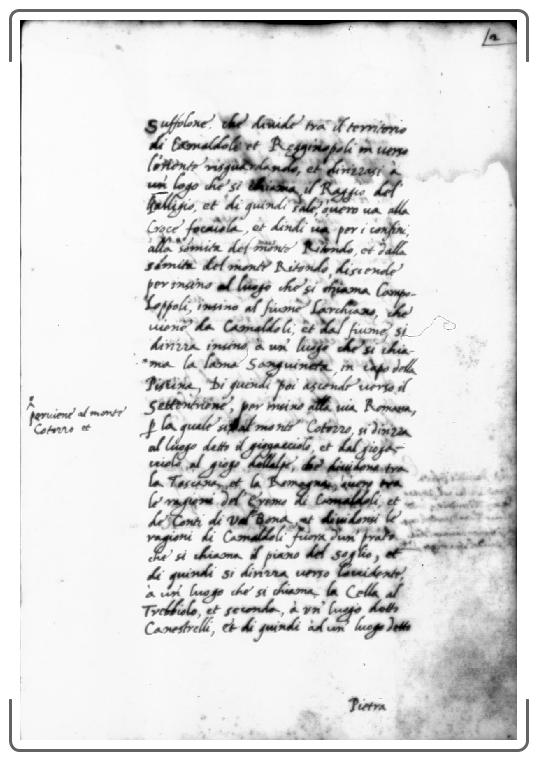 12
Suffolone che divide tra il territorio
di Camaldoli et Regginopoli in verso
l'oriente risguardando, et dirizasi à
un logo che si chiama il Raggio del
et di quindi sale, overo va alla
Croce focaiola, et dindi va per i confini
alla somita del monte Ritondo, et dalla
somita del monte Ritondo, discende
per insino al luogo che si chiama Campo-
Loppoli, insino al fiume Larchiano, che
viene da Camaldoli, et dal fiume, si
dirizza insino, à un' luogo che si chia-
ma la lama Sanguineta, in capo della
Di quendi poi ascende verso il
Settentrione, per insino alla via Romana,
perviene al monte
Cotozzo et
la quale al monte Cotozzo, si dirizza
al luogo detto il giogacciolo, et dal gioga-
cciolo al giogo dellalpe, che dividono tra
la Toscana, et la Romagna, overo tra
le ragioni del Eremo di Camaldoli, et
de Conti di Val Bona, et dividonsi le
ragioni di Camaldoli fuora dun prato
che si chiama il piano del soglio, et
di quindi si dirizza verso l'occidente,
à un' luogo che si chiama la Cella al
Trebbiolo, et seconda, à un' luogo detto
Canestrelli, et di quindi àd un' luogo detto
Pietra